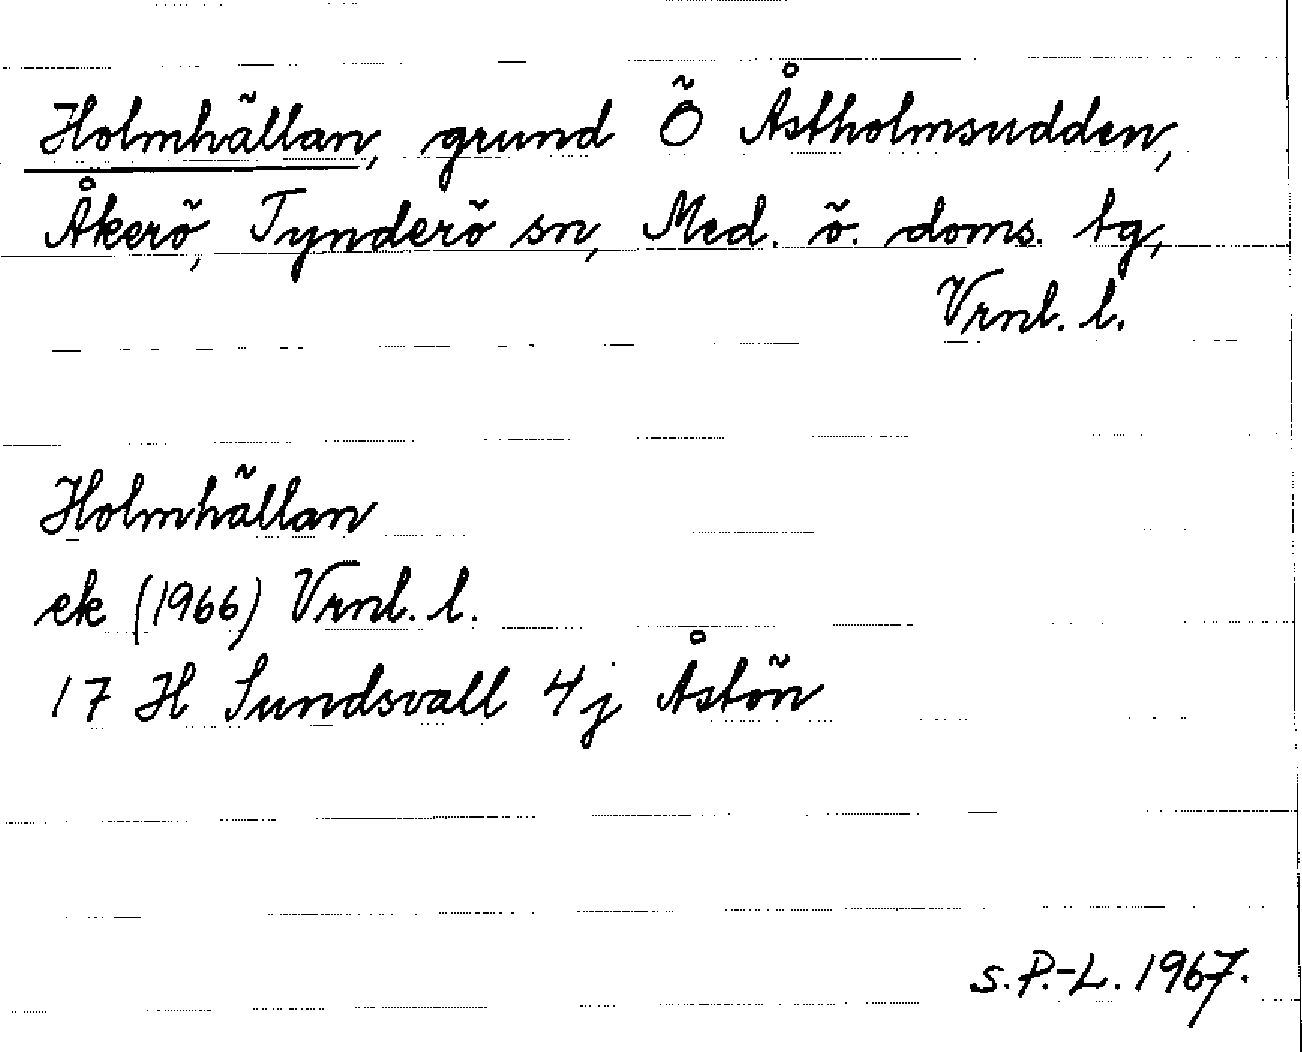 Holmhällan, grund Ö Åstholmsudden,
Åkerö, Tynderö sn, Med. ö. doms. tg,
Vrnl. l.
Holmhällan
ek (1966) Vrnl. l.
17 H Sundsvall 4j Åstön
S.P.-L. 1967.